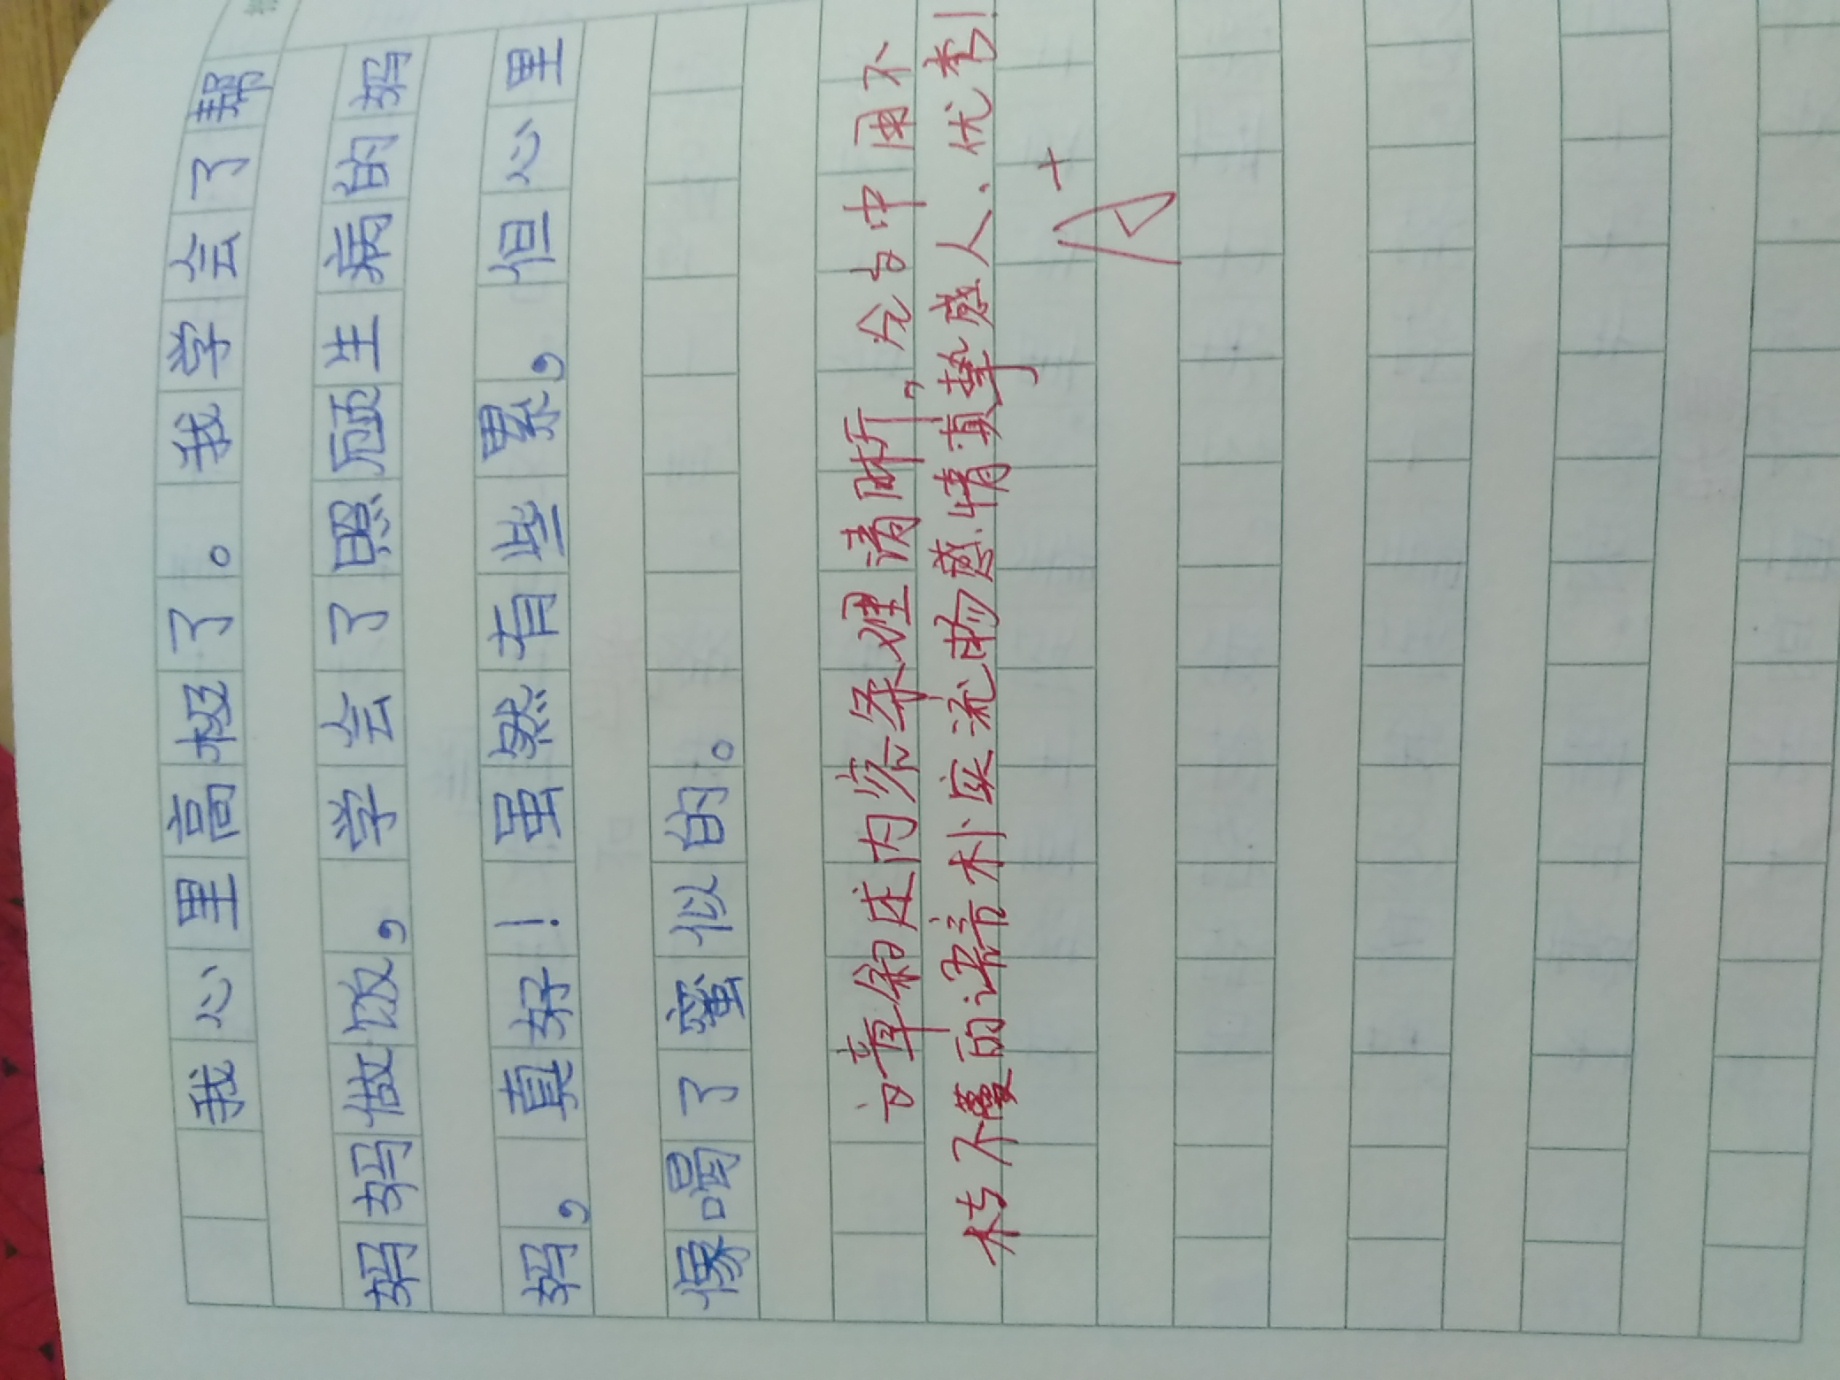 我心里高极了。我学会了帮
妈妈做饭，学会了照顾生病的妈
妈，真好！虽然有些累，但心里
像喝了蜜似的。
章叙述内容条理清晰，中用不
不蔓的语言朴实流畅感情真挚感人.优秀！
A+